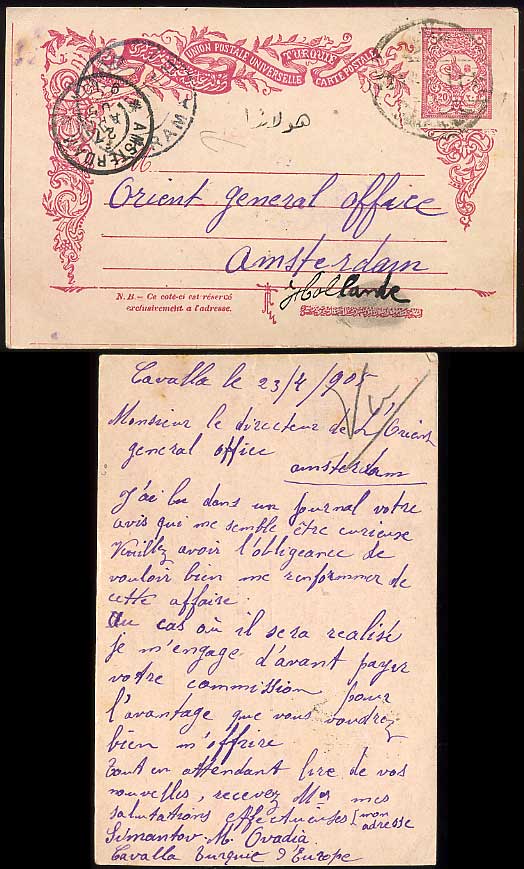 UNION POSTALE UNIVERSELLE
TURQUIE
CARTE POSTALE
20
AMSTERDAM
DRAMA
هولاندا
M
Orient general office
amsterdam
Hollande
N. B. — Ce coté-ci est réservé
exclusivement a l'adresse.
Cavalla le 23/4/905
Monsieur le directeur de L'Orient
general office
amsterdam
J'ai lu dans un journal votre
avis qui me semble être curieuse
Veuillez avoir l'obligeance de
vouloir bien me renformmer de
cette affaire.
Au cas où il sera realisé
je m'engage d'avant payer
votre commission pour
l'avantage que vous voudrez
bien m'offrire
Tout en attendant lire de vos
nouvelles, recevez Mr mes
salutations effectueuses [mon
adresse
Simantov. M. Ovadia
Cavalla Turquie d'Europe